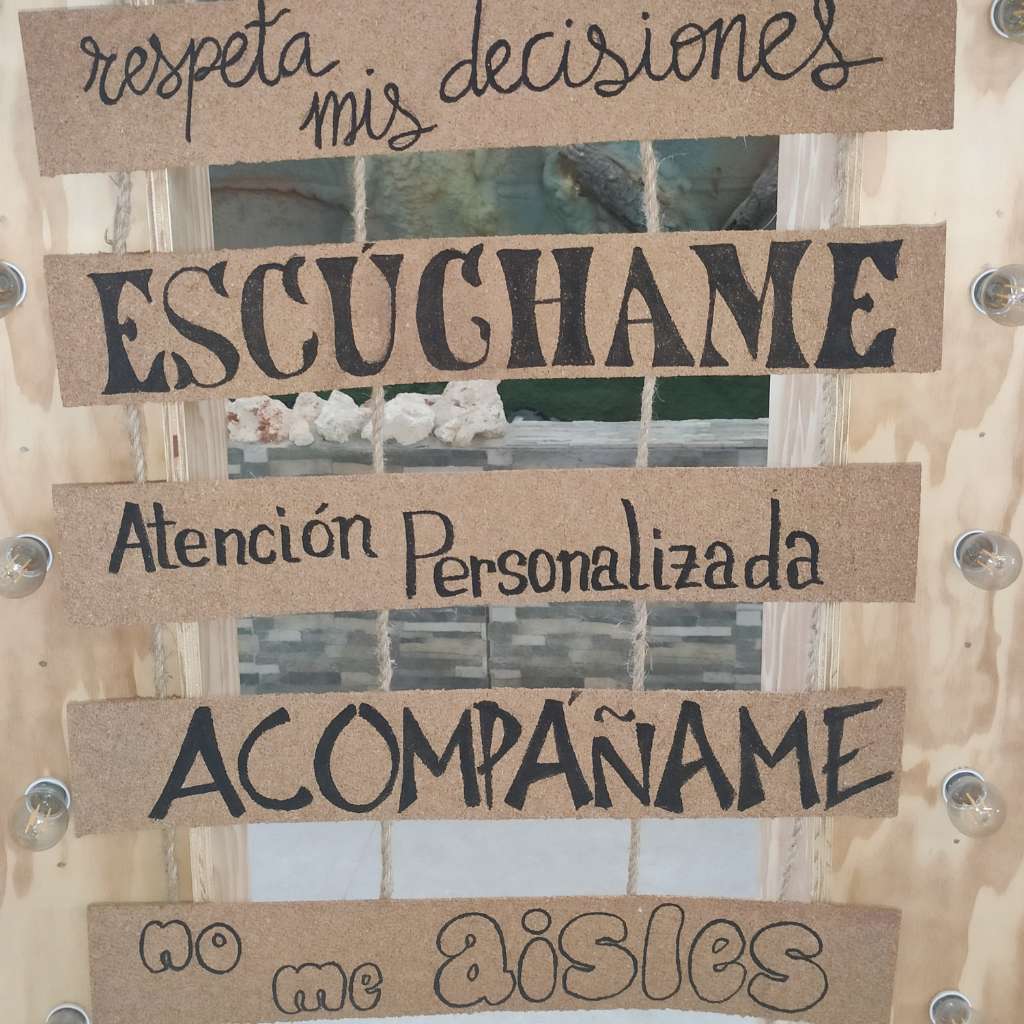 respeta mis decisiones
ESCÚCHAME
Atención Personalizada
ACOMPÁÑAME
no me aisles